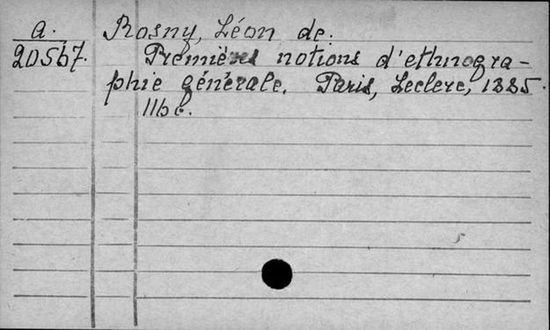 a. Rosny, Léon de.
20567. Premières notions d'ethnogra-
phie générale. Paris, Leclerc, 1885.
116 l.
5